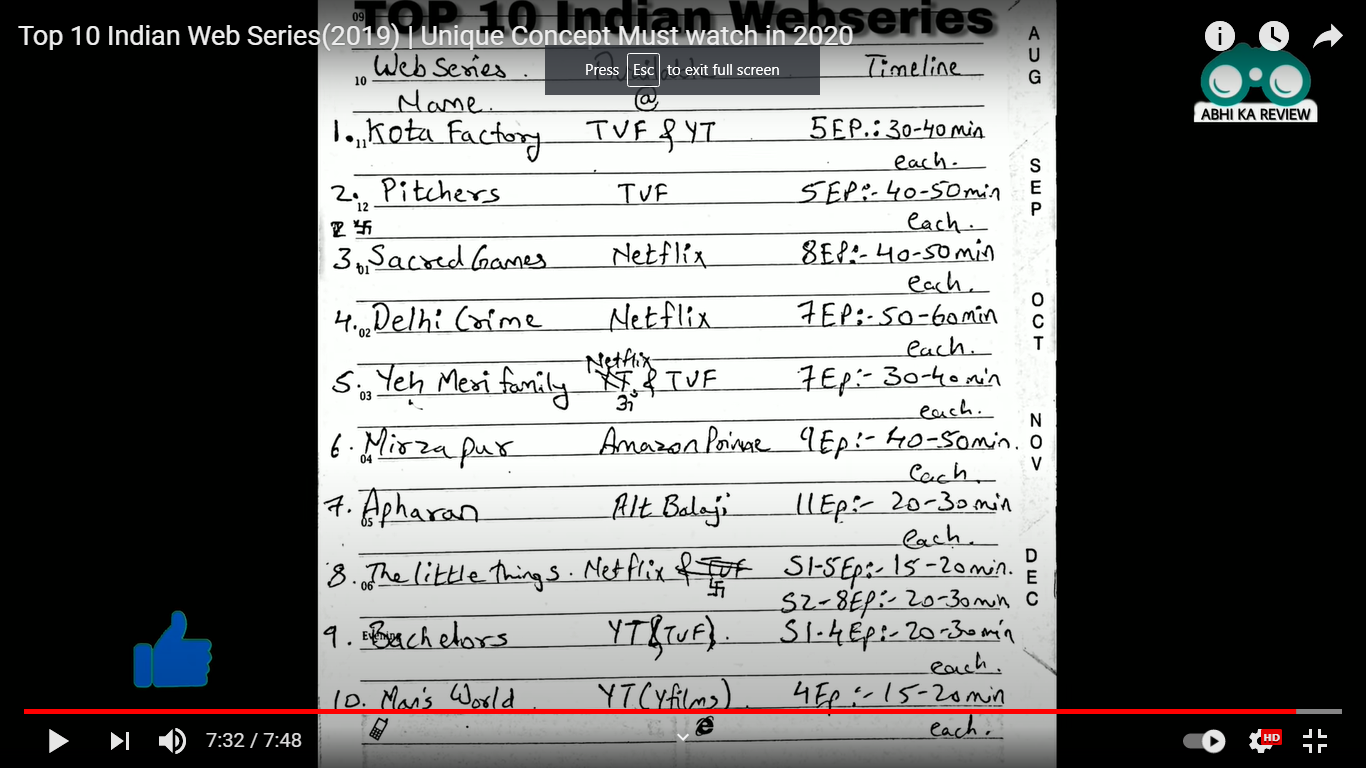 TOP 10 Indian Webseries
Top 10 Indian Web Series(2019) | Unique Concept Must watch in 2020
Press Esc to exit full screen
ABHI KA REVIEW
09
10 Web Series Timeline
Name. @
1. 11 Kota Factory TVF & YT 5EP.: 30-40 min
each.
2. 12 Pitchers TVF 5EP:- 40-50min
each.
3. 01 Sacred Games Netflix 8EP:- 40-50min
each.
4. 02 Delhi Crime Netflix 7EP:- 50-60min
each.
Netflix
5. 03 Yeh Meri family YT. & TVF 7Ep:- 30-40min
ॐ each.
6. 04 Mirzapur Amazon Prime 9Ep:- 40-50min.
each.
7. 05 Apharan Alt Balaji 11Ep:- 20-30min
each.
8. 06 The little things. Netflix & TVF S1-5Ep:- 15-20min.
S2-8Ep:- 20-30min
9. Evening Bachelors YT (TVF). S1-4Ep:- 20-30min
each.
10. Man's World YT (Yfilms) 4Ep:- 15-20min
e each.
AUG
SEP
OCT
NOV
DEC
7:32 / 7:48
HD